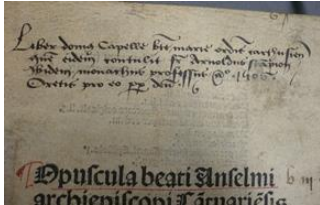 Liber domq Capelle btē marie ordīs cartusien
quē eidem contulit fr Arnoldus
ibidem monachus professus aº 1506
Oretis pro eo dēū
¶Opuscula beati Anselmi b iii
archiepiscopi Cātuariēsis